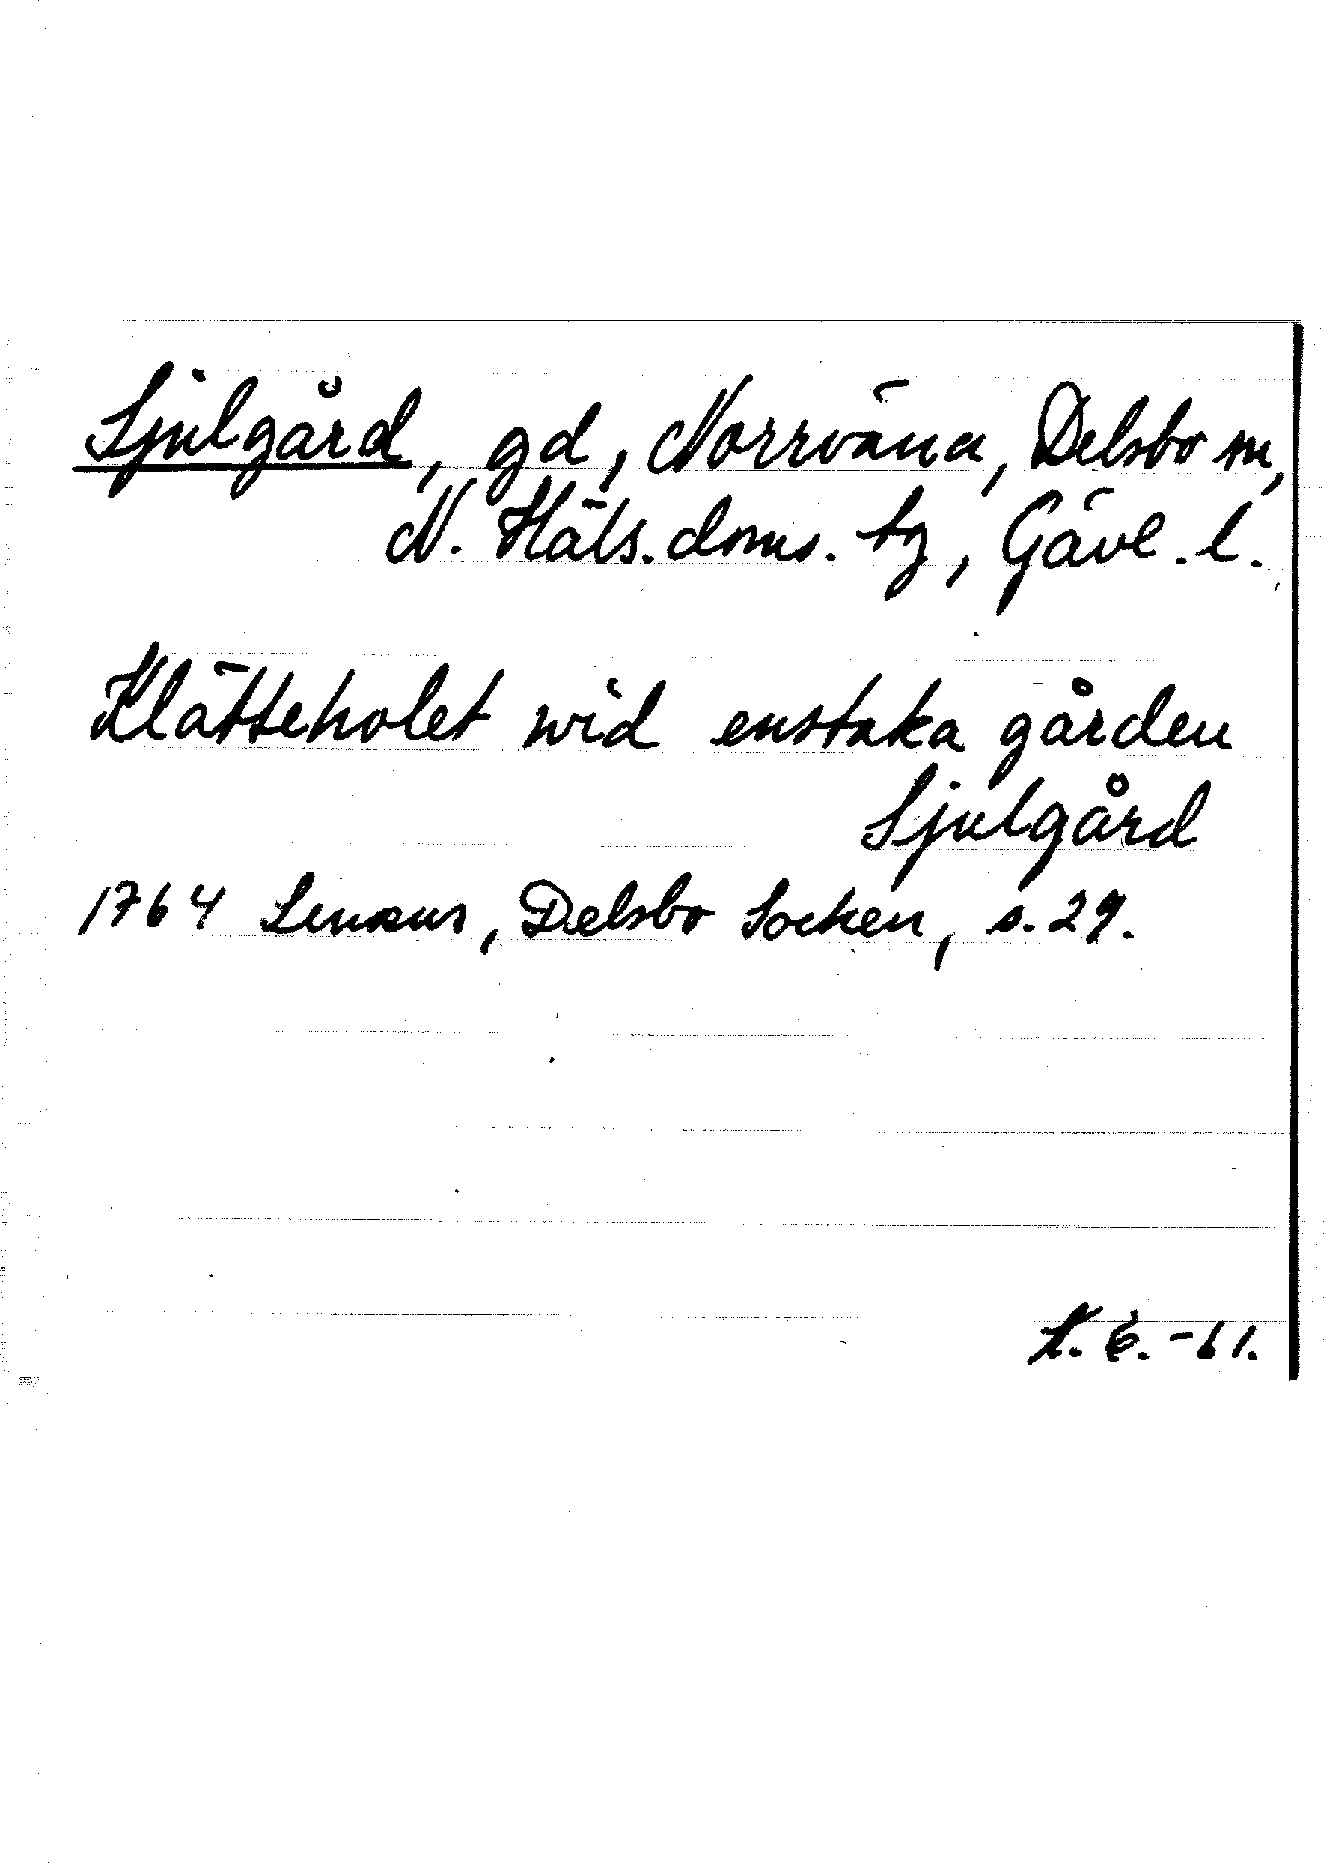 Sjulgård, gd, Norrväna, Delsbo sn,
N. Häls. doms. tg, Gävl. l.
Klätteholet wid enstaka gården
Sjulgård
1764 Lenæus, Delsbo Socken, s. 29.
-61.